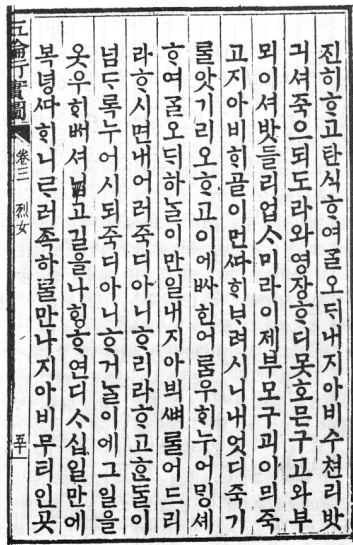 진히ᄒᆞ고탄식ᄒᆞ여ᄀᆞᆯ오ᄃᆡ내지아비수쳔리밧
긔셔죽으되도라와영장ᄒᆞ디못호믄구고와부
뫼이셔밧들리업ᄉᆞ미라이제부모구괴아믜죽
고지아비ᄒᆡ골이먼ᄯᅡᄒᆡᄇᆞ려시니내엇디죽기
ᄅᆞᆯ앗기리오ᄒᆞ고이에ᄡᅡ힌어룸우ᄒᆡ누어ᄆᆡᆼ셰
ᄒᆞ여ᄀᆞᆯ오ᄃᆡ하ᄂᆞᆯ이만일내지아븨ᄲᅧᄅᆞᆯ어드리
라ᄒᆞ시면내어러죽디아니ᄒᆞ리라ᄒᆞ고ᄒᆞᆫᄃᆞᆯ이
넘ᄃᆞ록누어시되죽디아니ᄒᆞ거ᄂᆞᆯ이에그일을
옷우ᄒᆡᄡᅥ셔닙고길을나ᄒᆡᆼᄒᆞ연디ᄉᆞ십일만에
복녕ᄯᅡᄒᆡ니ᄅᆞ러족하ᄅᆞᆯ만나지아비무티인곳
五倫行實圖 卷三 烈女